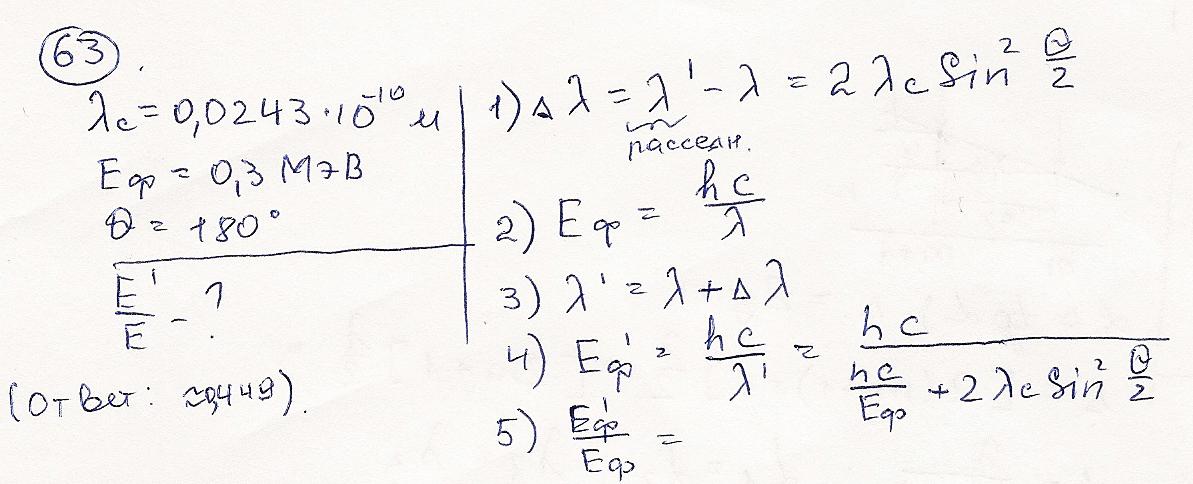 63.
λc = 0,0243·10⁻¹⁰ м
Eф = 0,3 МэВ
θ = 180°
E'/E - ?
(Ответ: ≈0,449).
1) Δλ = λ' - λ = 2λc sin² θ/2
рассеян.
2) Eф = hc/λ
3) λ' = λ + Δλ
4) Eф' = hc/λ' = hc/(hc/Eф + 2λc sin² θ/2)
5) Eф'/Eф =